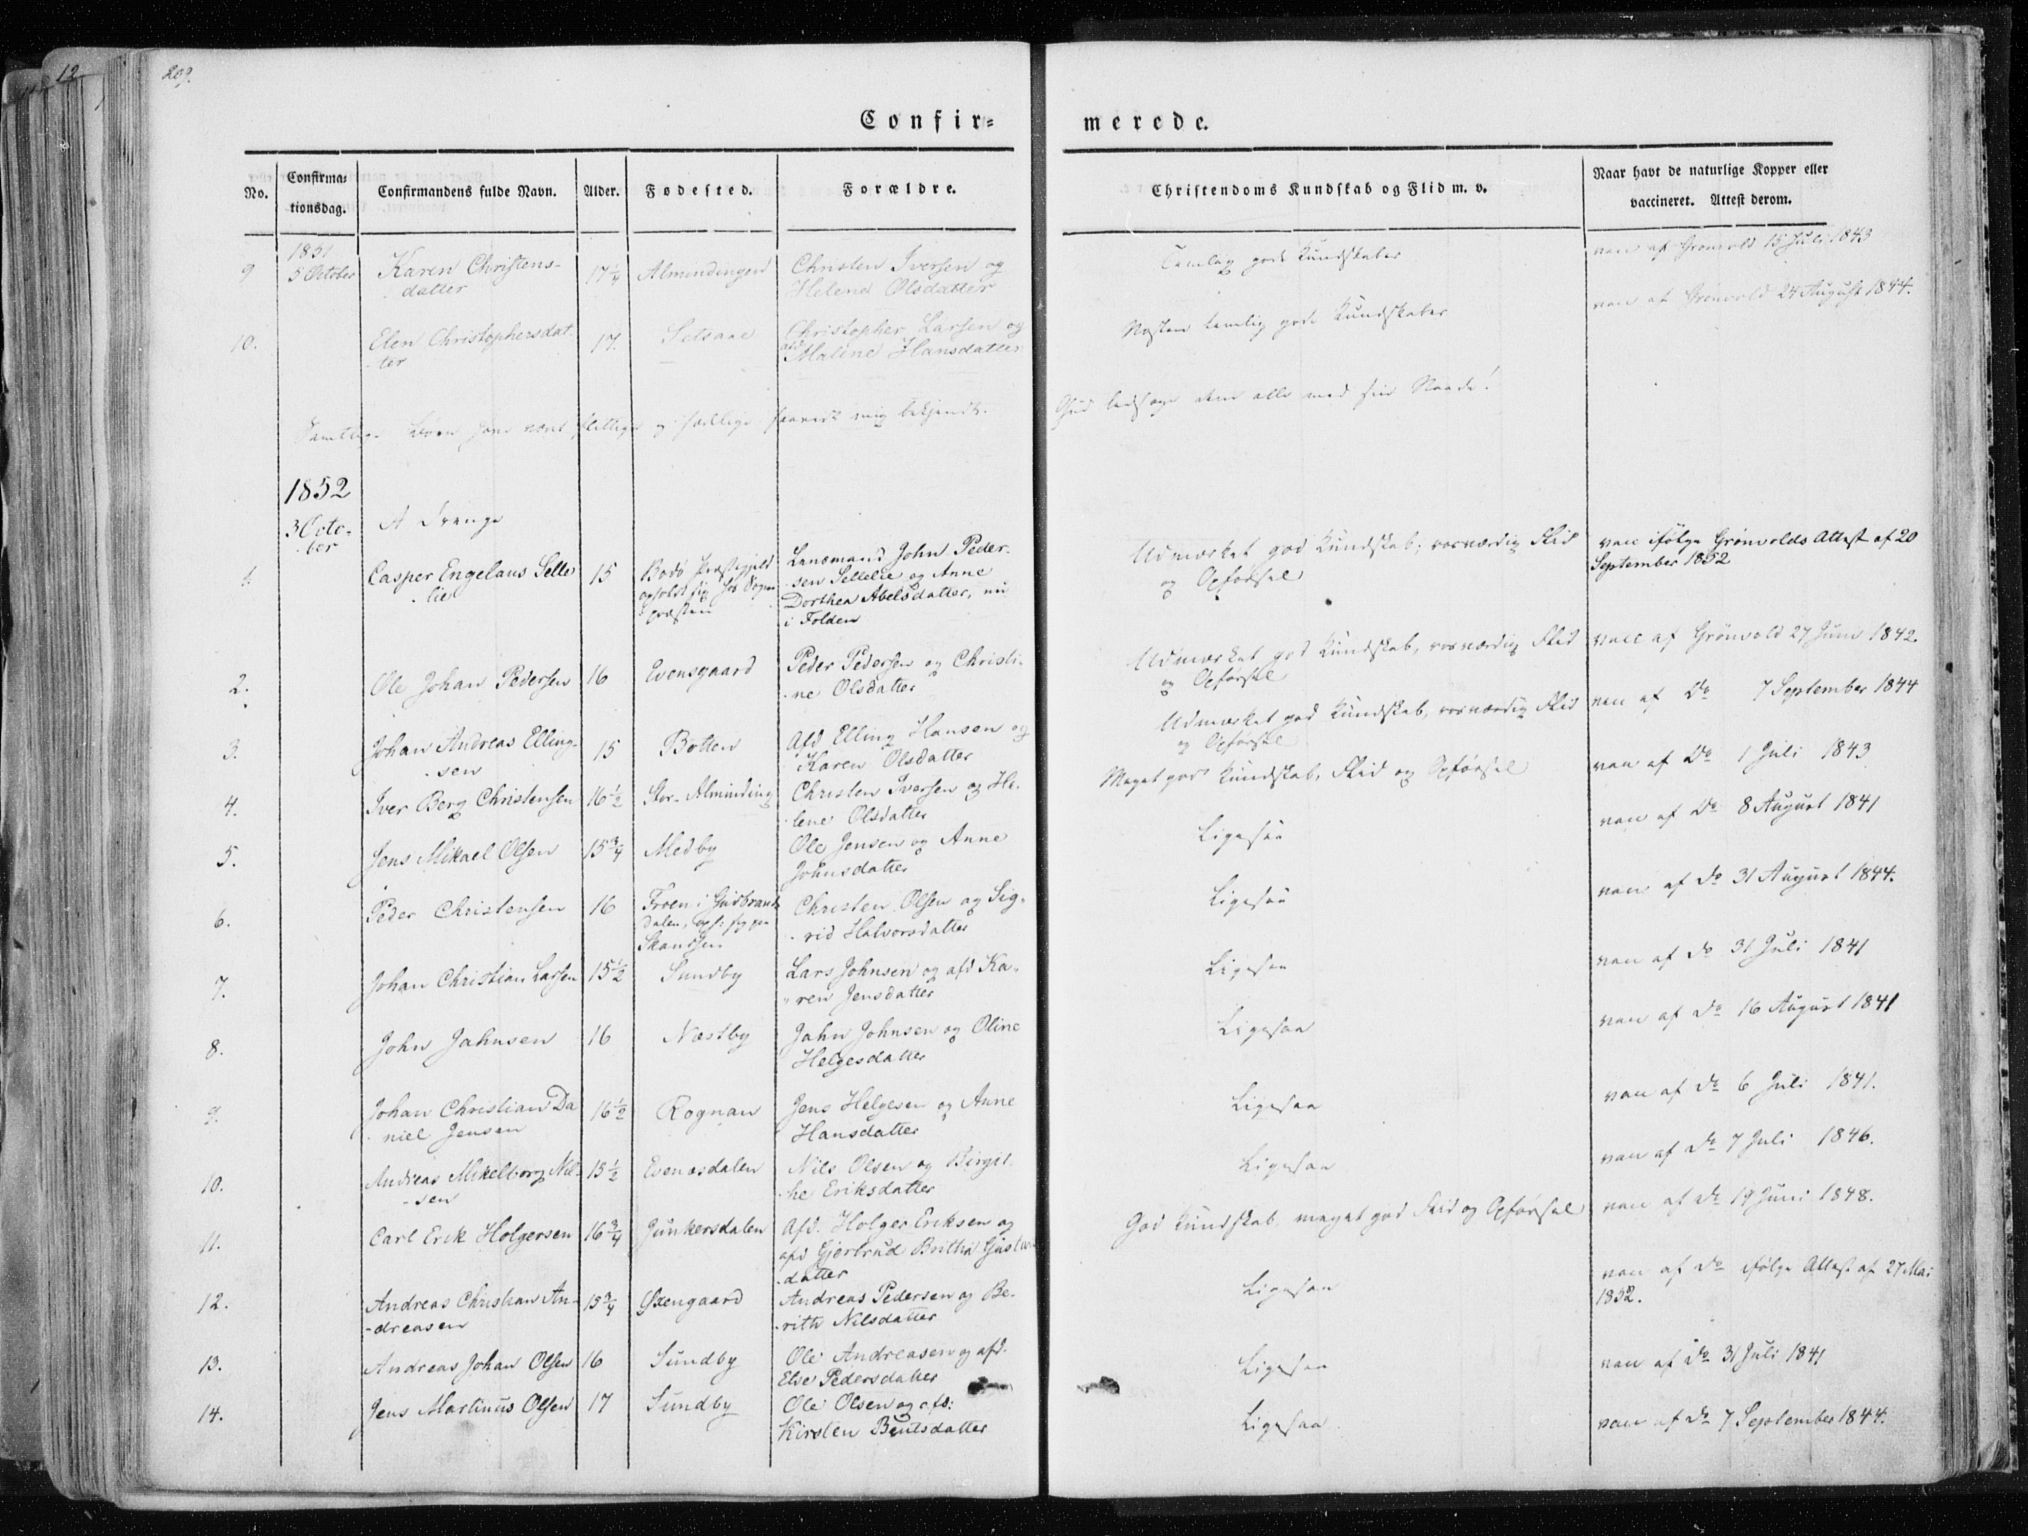 12
209.
Confir=
merede.
No.
Confirma=
tionsdag.
Confirmandens fulde Navn.
Alder.
Fødested.
Forældre.
Christendoms Kundskab og Flid m. v.
Naar havt de naturlige Kopper eller
vaccineret. Attest derom.
1851
9
5 October
Karen Christens-
datter
17¼
Almindingen
Christen Iversen og
Helene Olsdatter
Temlig gode Kundskaber
vacc af Grønvold 15 Juli 1843
10.
Elen Christophersdat-
ter
17.
Setsaae
Christopher Larsen og
afd Maline Hansdatter
Næsten temlig gode Kundskaber
vacc af Grønvold 24 August 1844.
Samtlige Børn have været flittige og sædelige saavidt mig bekjendt.
Gud ledsage dem alle med sin Naade!
1852
3 Octo-
ber
A Drenge
1.
Casper Engelaus Sette
lie
15
Bodø Præstegjeld
opholdt sig hos Sogne
præsten
Lensmand John Peder-
sen Settelie og Anne
Dorthea Abelsdatter, nu
i Folden
Udmærket god Kundskab, rosværdig Flid
og Opførsel
vacc ifølge Grønvolds Attest af 20
September 1852
2.
Ole Johan Pedersen
16
Evensgaard
Peder Pedersen og Christi-
ne Olsdatter
Udmærket god Kundskab, rosværdig Flid
og Opførsel
vacc af Grönvold 27 Juni 1842.
3.
Johan Andreas Elling-
sen
15
Botten
Afd Elling Hansen og
Karen Olsdatter
Udmærket god Kundskab, rosværdig Flid
og Opførsel
vacc af Do 7 September 1844
4.
Iver Berg Christensen
16½
Stor-Alminding
Christen Iversen og He-
lene Olsdatter
Meget god Kundskab, Flid og Opførsel
vacc af Do 1 Juli 1843
5.
Jens Mikael Olsen
15¾
Medby
Ole Jensen og Anne
Johnsdatter
Ligesaa
vacc af Do 8 August 1841
6.
Peder Christensen
16
Froen i Gudbrands
dalen, oph: sig paa
Skandsen
Christen Olsen og Sig-
rid Halvorsdatter
Ligesaa
vacc af Do 31 August 1844.
7.
Johan Christian Larsen
15½
Sundby
Lars Johnsen og afd Ka-
ren Jensdatter
Ligesaa
vacc af Do 31 Juli 1841
8.
John Jahnsen
16
Næstby
Jahn Johnsen og Oline
Helgesdatter
Ligesaa
vacc af Do 16 August 1841
9.
Johan Christian Da
niel Jensen
16½
Rognan
Jens Helgesen og Anne
Hansdatter
Ligesaa
vacc af Do 6 Juli 1841.
10.
Andreas Mikelborg Nil-
sen
15½
Evenesdalen
Nils Olsen og Birgit-
he Eriksdatter
Ligesaa
vacc af Do 7 Juli 1846.
11.
Carl Erik Holgersen
16¾
Junkersdalen
Afd. Holger Eriksen og
afd Gjertrud Britha Gustav-
datter
God Kundskab, meget god Flid og Opførsel
vacc af Do 19 Juni 1848.
12.
Andreas Christian An-
dreasen
15¾
Øxengaard
Andreas Pedersen og Be-
rith Nilsdatter
Ligesaa
vacc af Do ifølge Attest af 27 Mai
1852.
13.
Andreas Johan Olsen
16
Sundby
Ole Andreasen og afd.
Else Pedersdatter
Ligesaa
vacc af Do 31 Juli 1841
14.
Jens Martinus Olsen
17
Sundby
Ole Olsen og afd:
Kirsten Bentsdatter
Ligesaa
vacc af Do 7 September 1844.